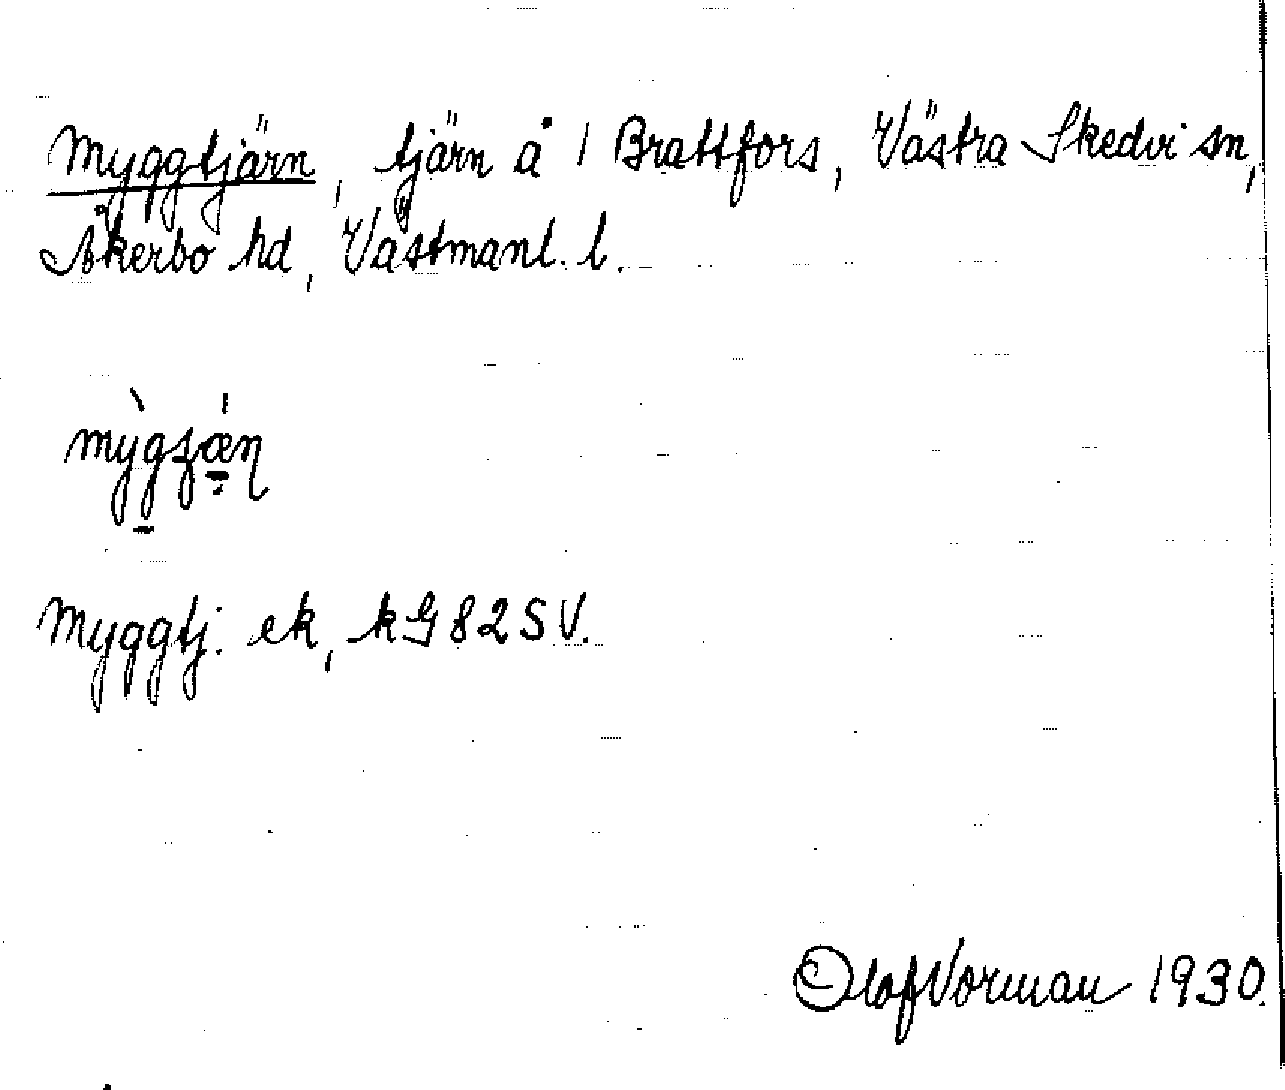 Myggtjärn, tjärn å 1 Brattfors, Västra Skedvi sn,
Åkerbo hd, Västmanl. l.
Myggtj. ek, kG 82 SV.
Olof Vorman 1930.